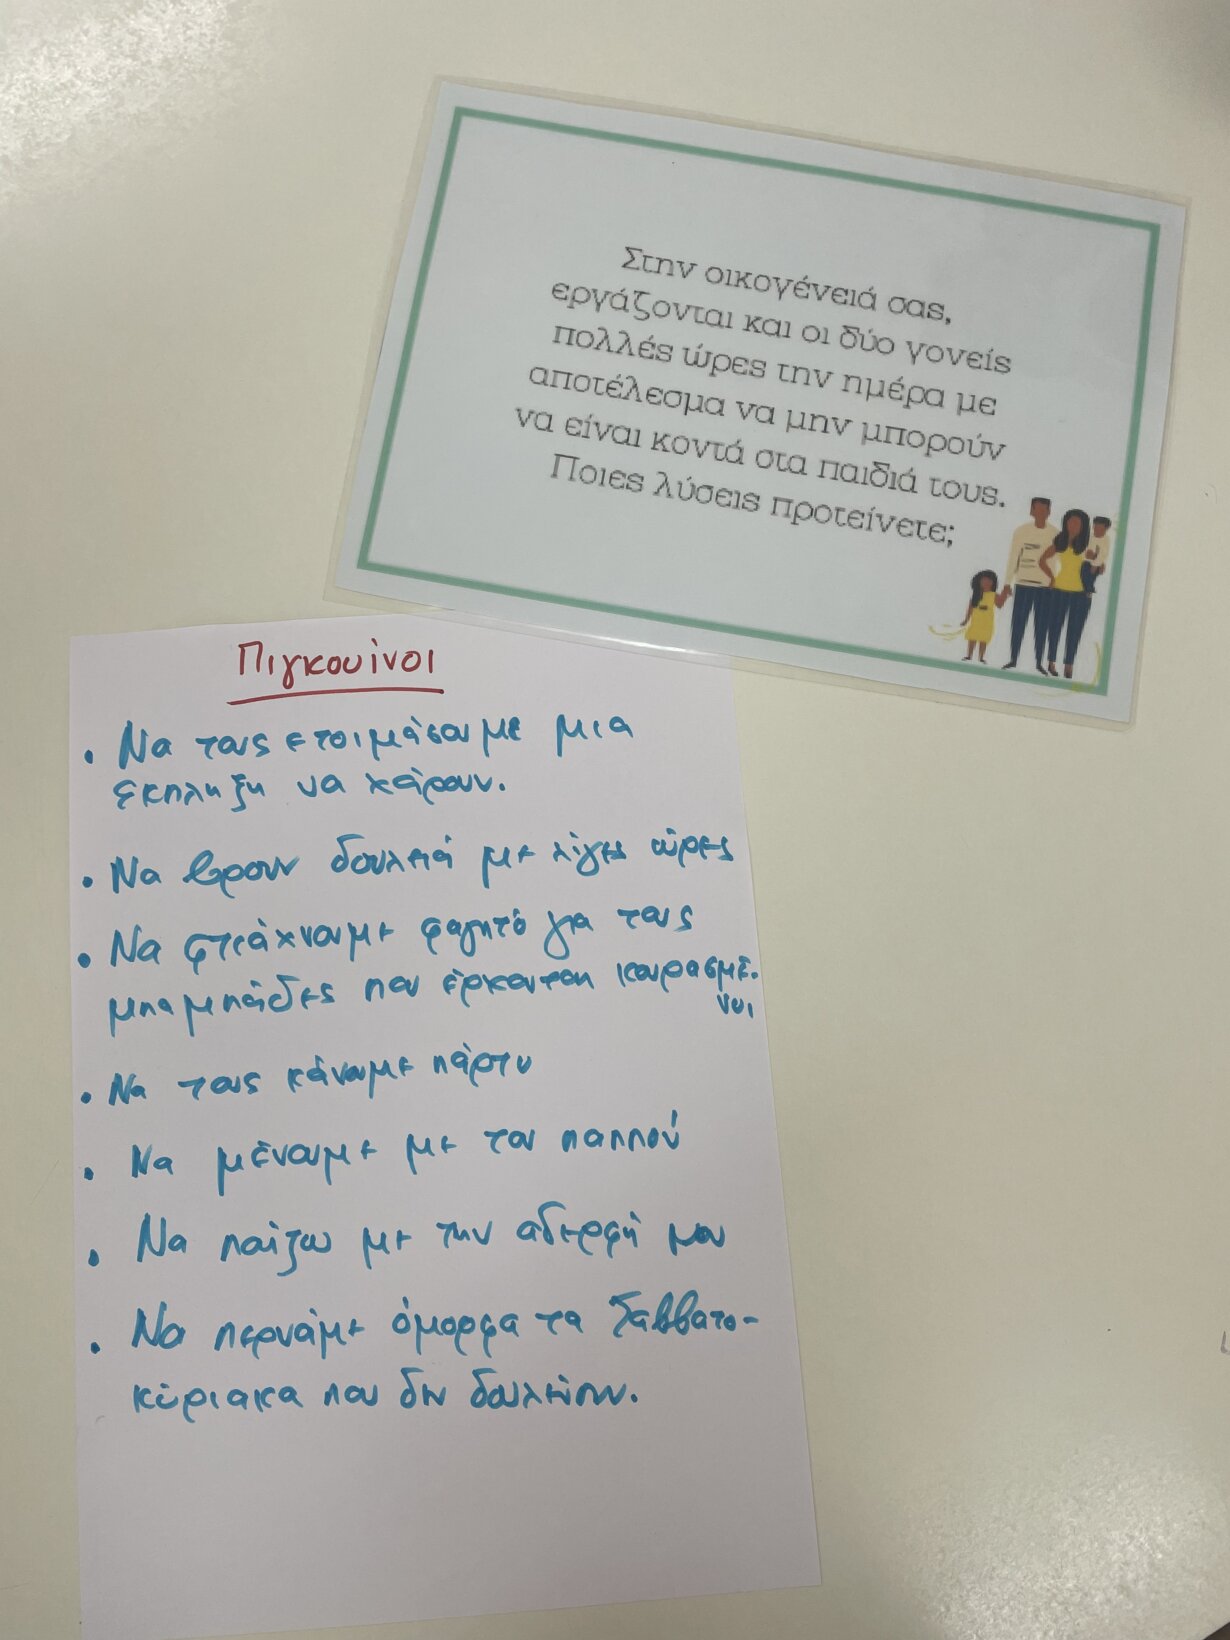 Στην οικογένειά σας,
εργάζονται και οι δύο γονείς
πολλές ώρες την ημέρα με
αποτέλεσμα να μην μπορούν
να είναι κοντά στα παιδιά τους.
Ποιες λύσεις προτείνετε;
Πιγκουίνοι
• Να τους ετοιμάσουμε μια
έκπληξη να χαρούν.
• Να βρουν δουλειά με λίγες ώρες
• Να φτιάχνουμε φαγητό για τους
μπαμπάδες που έρχονται κουρασμέ-
νοι
• Να τους κάνουμε πάρτυ
• Να μένουμε με τον παππού
• Να παίζω με την αδερφή μου
• Να περνάμε όμορφα τα Σαββατο-
κύριακα που δεν δουλεύουν.